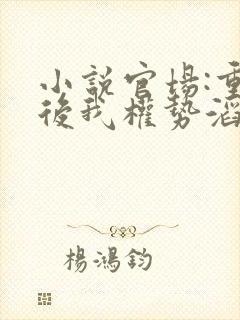 小說官場:重
後我權勢滔
楊鴻鈞